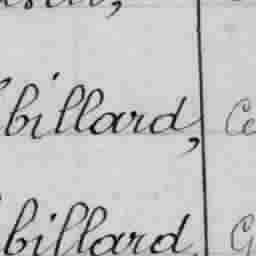 billard, Ce
billard, G